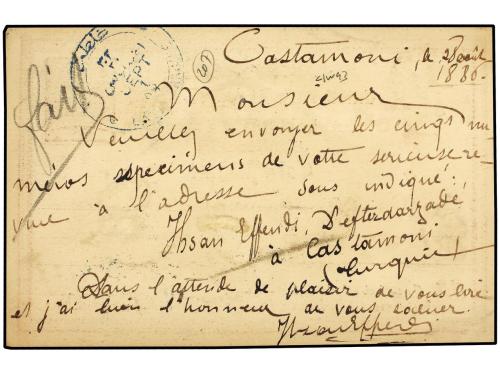 Castamoni, le 28 août
1886.
207
Monsieur
Veuillez envoyer les cinqs nu
méros specimens de votre serieuse re
vue à l'adresse sous indiqué :,
Ihsan Effendi, Defterdarzadé
à Castamoni
(Turquie)
Dans l'attende de plaisir de vous lire
et j'ai bien l'honneur de vous saluer.
Ihsan Effendi